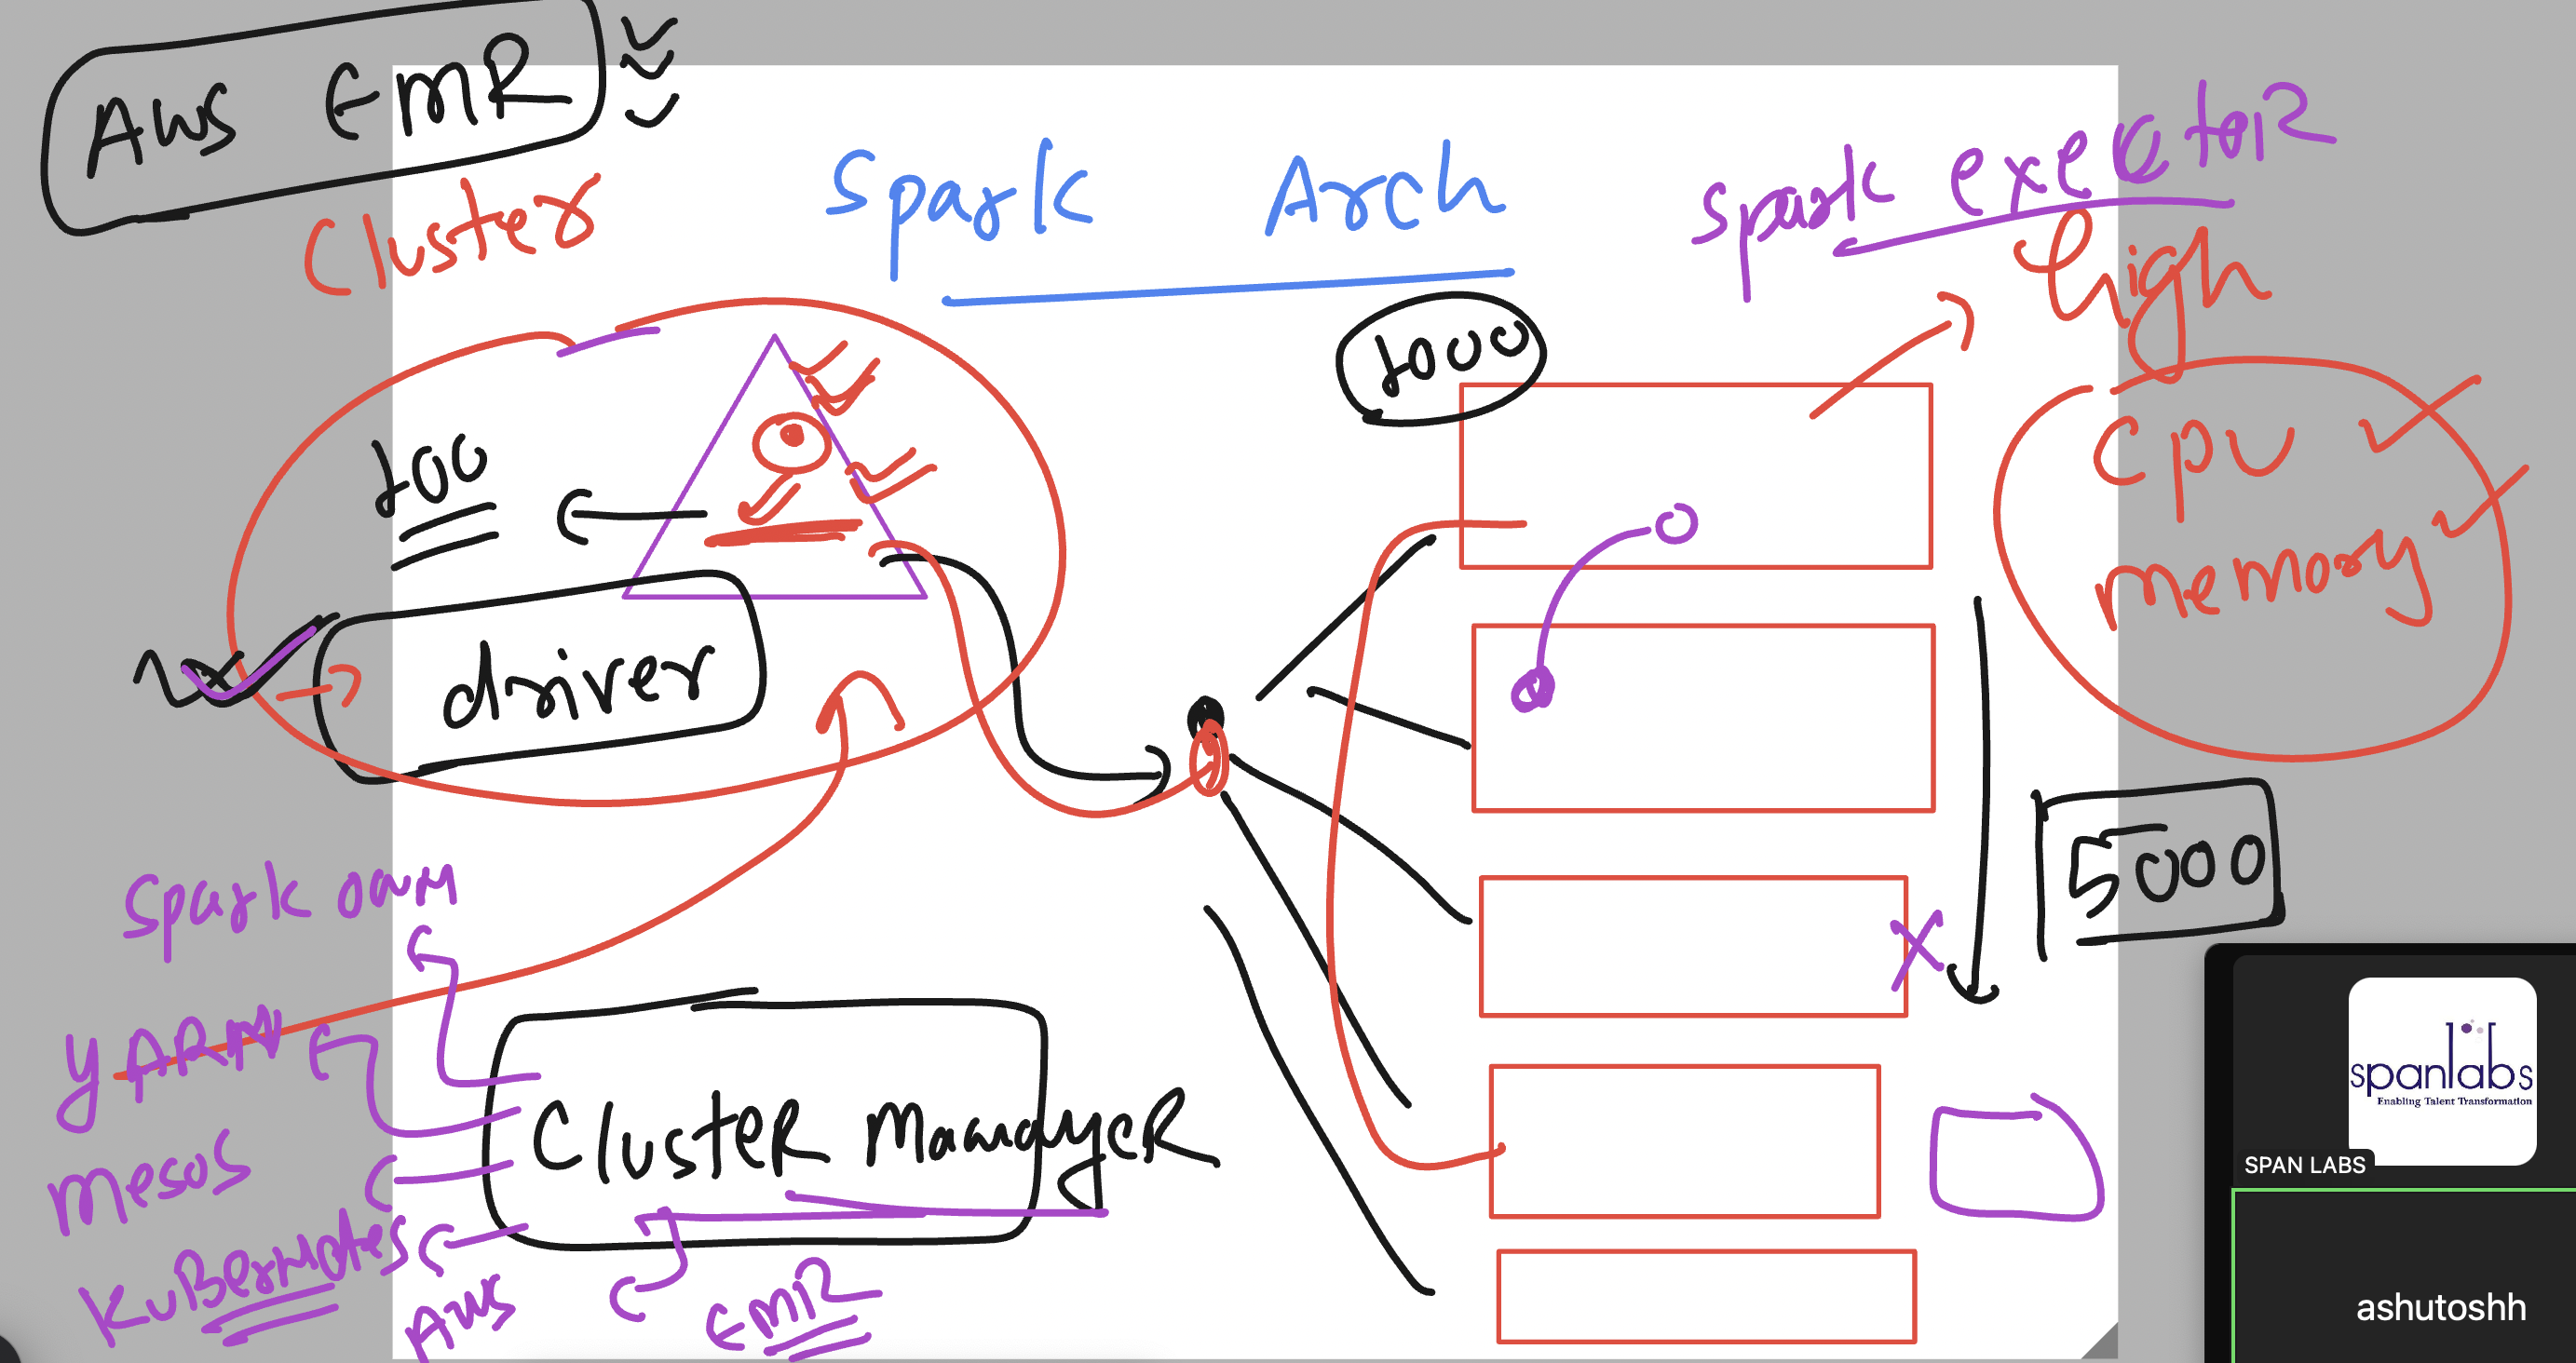 Aws EMR
Cluster
Spark Arch
Spark executor
high
1000
100
Cpu
memory
driver
5000
Spark own
YARN
mesos
Kubernates
Cluster Manager
Aws
EMR
spanlabs
Enabling Talent Transformation
SPAN LABS
ashutoshh